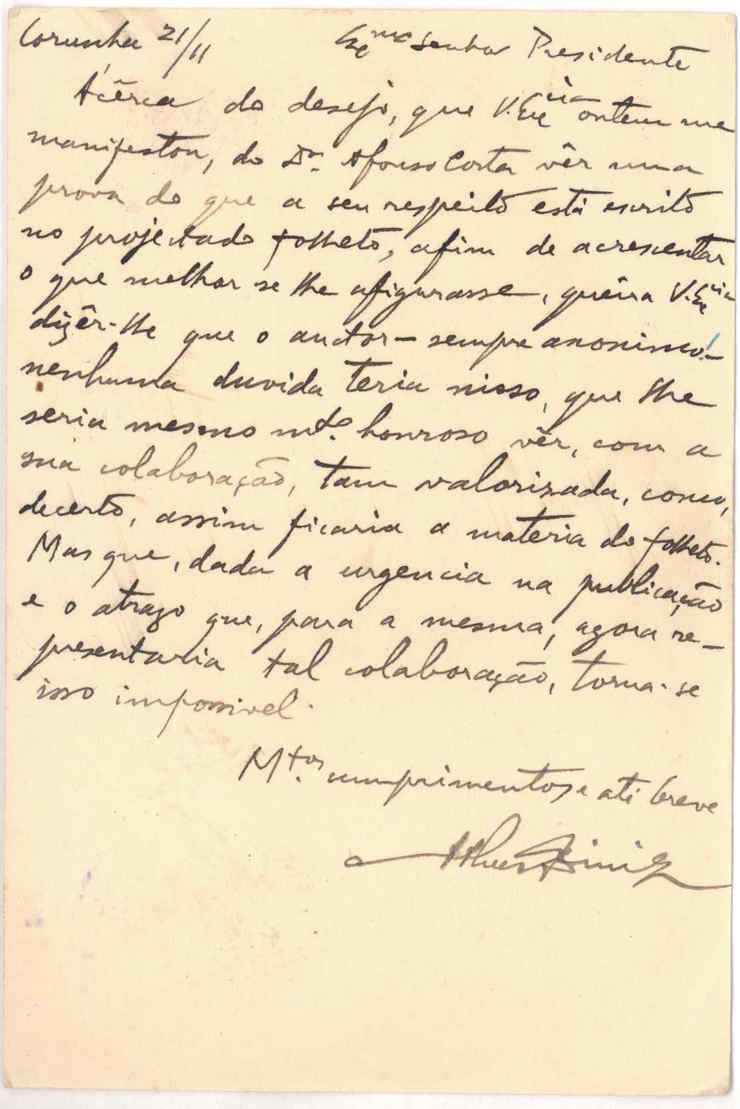 Corunha 21/11 Exmo Senhor Presidente
Àcêrca do desejo, que V. Excia ontem me
manifestou, do Dr. Afonso Costa vêr uma
prova do que a seu respeito está escrito
no projectado folheto, afim de acrescentar
o que melhor se lhe afigurasse, queira V. Excia
dizêr-lhe que o auctor – sempre anonimo! –
nenhuma duvida teria nisso, que lhe
seria mesmo mto. honroso vêr, com a
sua colaboração, tam valorizada, como,
decerto, assim ficaria a materia do folheto.
Mas que, dada a urgencia na publicação
e o atrazo que, para a mesma, agora re-
presentaria tal colaboração, torna-se
isso impossivel.
Mtos. cumprimentos e até breve